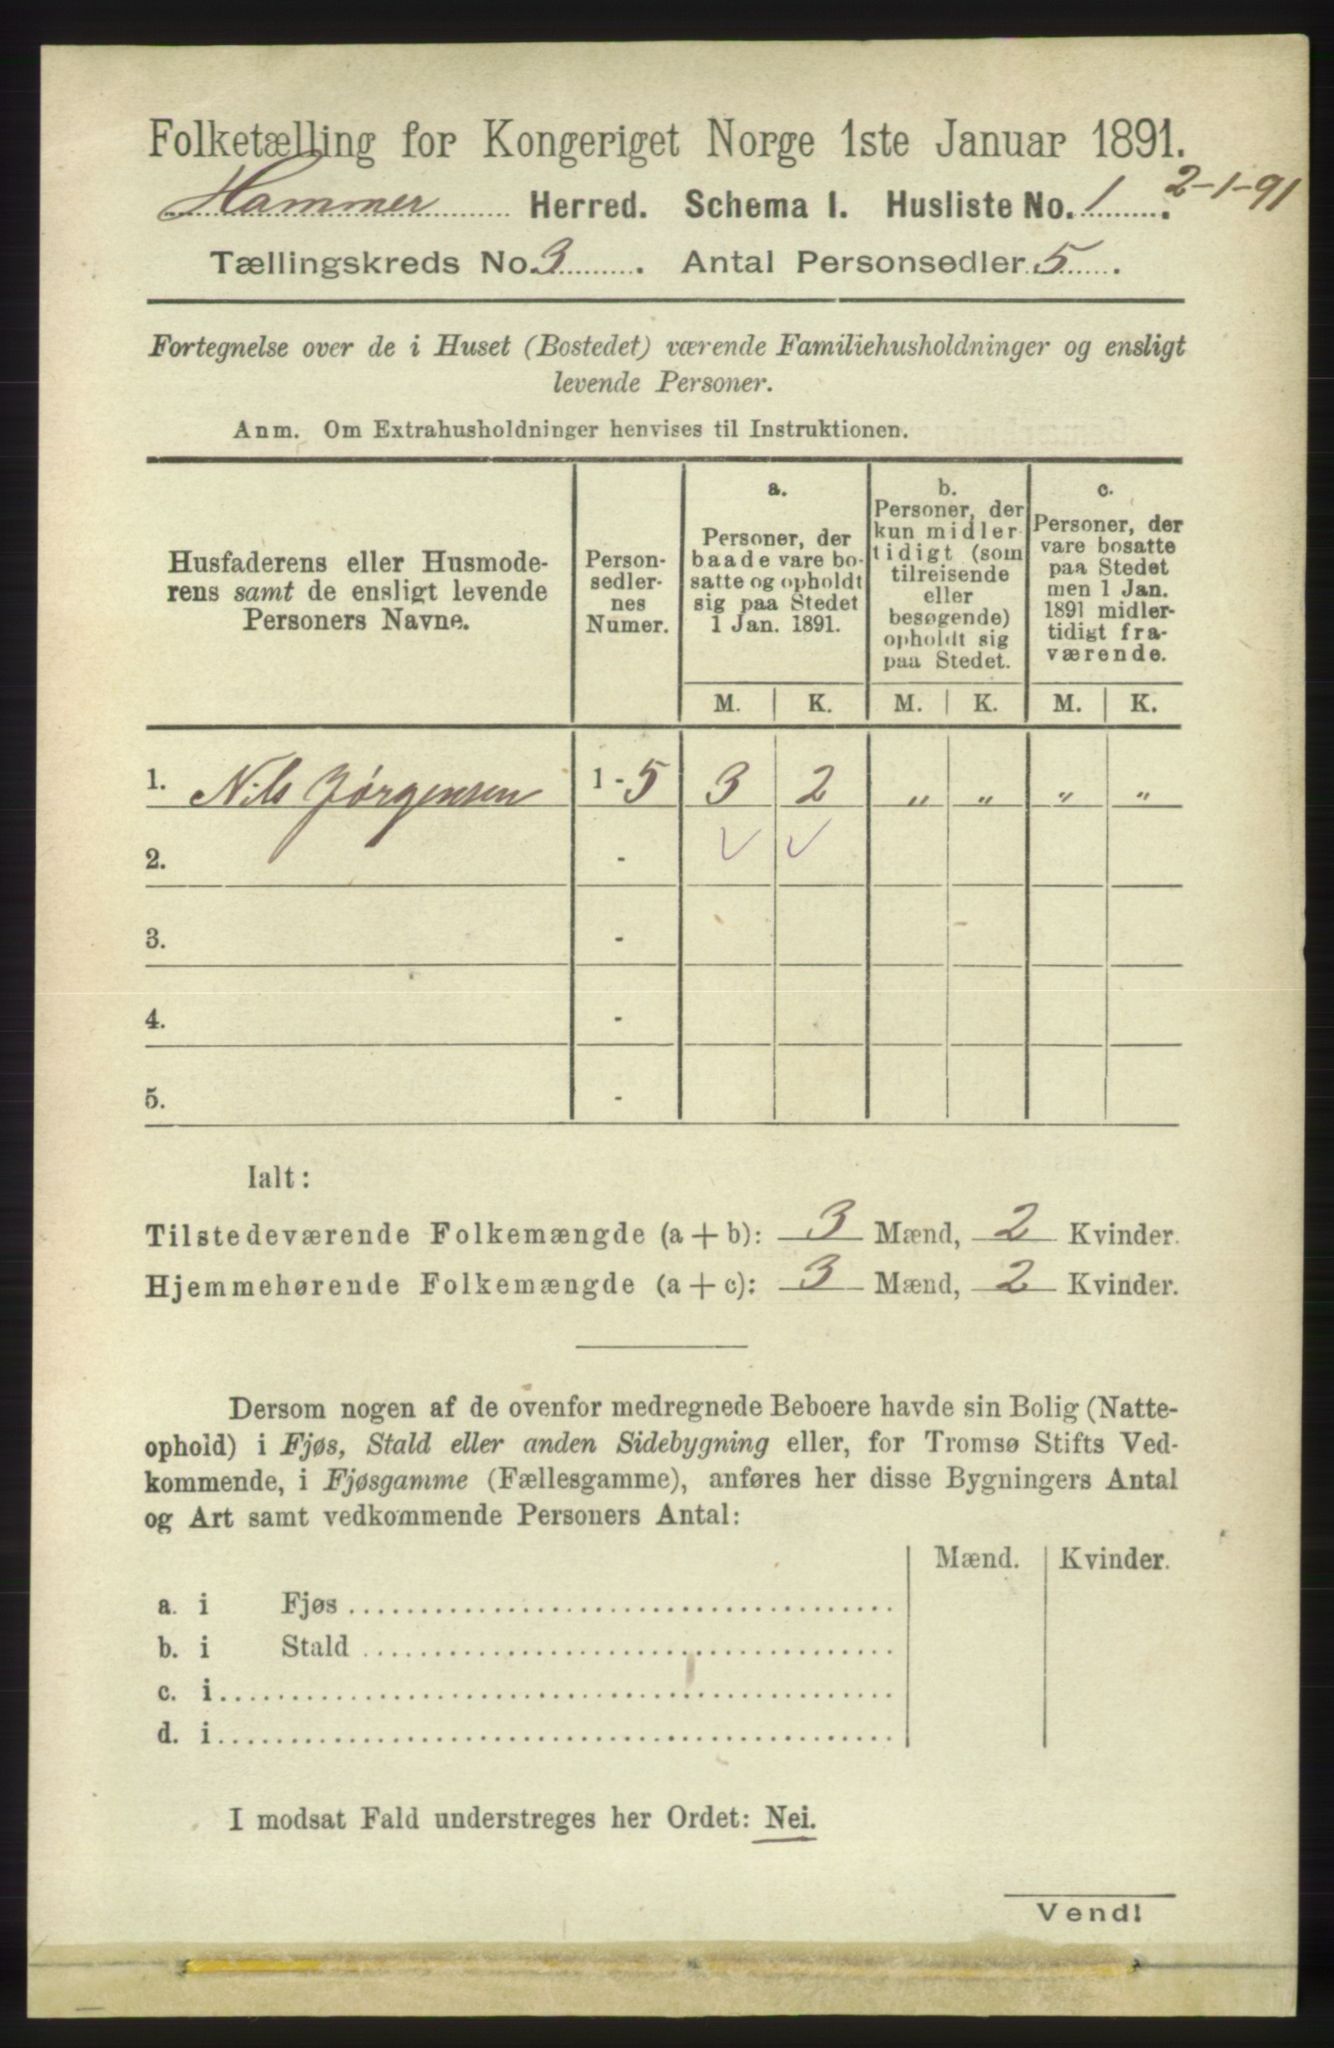 Folketælling for Kongeriget Norge 1ste Januar 1891.
Hammer Herred. Schema I. Husliste No. 1. 2-1-91
Tællingskreds No. 3. Antal Personsedler 5.
Fortegnelse over de i Huset (Bostedet) værende Familiehusholdninger og ensligt
levende Personer.
Anm. Om Extrahusholdninger henvises til Instruktionen.
Husfaderens eller Husmode-
rens samt de ensligt levende
Personers Navne.
Person-
sedler-
nes
Numer.
a.
Personer, der
baade vare bo-
satte og opholdt
sig paa Stedet
1 Jan. 1891.
b.
Personer, der
kun midler-
tidigt (som
tilreisende
eller
besøgende)
opholdt sig
paa Stedet.
c.
Personer, der
vare bosatte
paa Stedet
men 1 Jan.
1891 midler-
tidigt fra-
værende.
M. K. M. K. M. K.
1. Nils Jørgensen 1 - 5 3 2 " " " "
2. -
3. -
4. -
5. -
Ialt:
Tilstedeværende Folkemængde (a + b): 3 Mænd, 2 Kvinder.
Hjemmehørende Folkemængde (a + c): 3 Mænd, 2 Kvinder.
Dersom nogen af de ovenfor medregnede Beboere havde sin Bolig (Natte-
ophold) i Fjøs, Stald eller anden Sidebygning eller, for Tromsø Stifts Ved-
kommende, i Fjøsgamme (Fællesgamme), anføres her disse Bygningers Antal
og Art samt vedkommende Personers Antal:
Mænd. Kvinder.
a. i Fjøs
b. i Stald
c. i
d. i
I modsat Fald understreges her Ordet: Nei.
Vend!